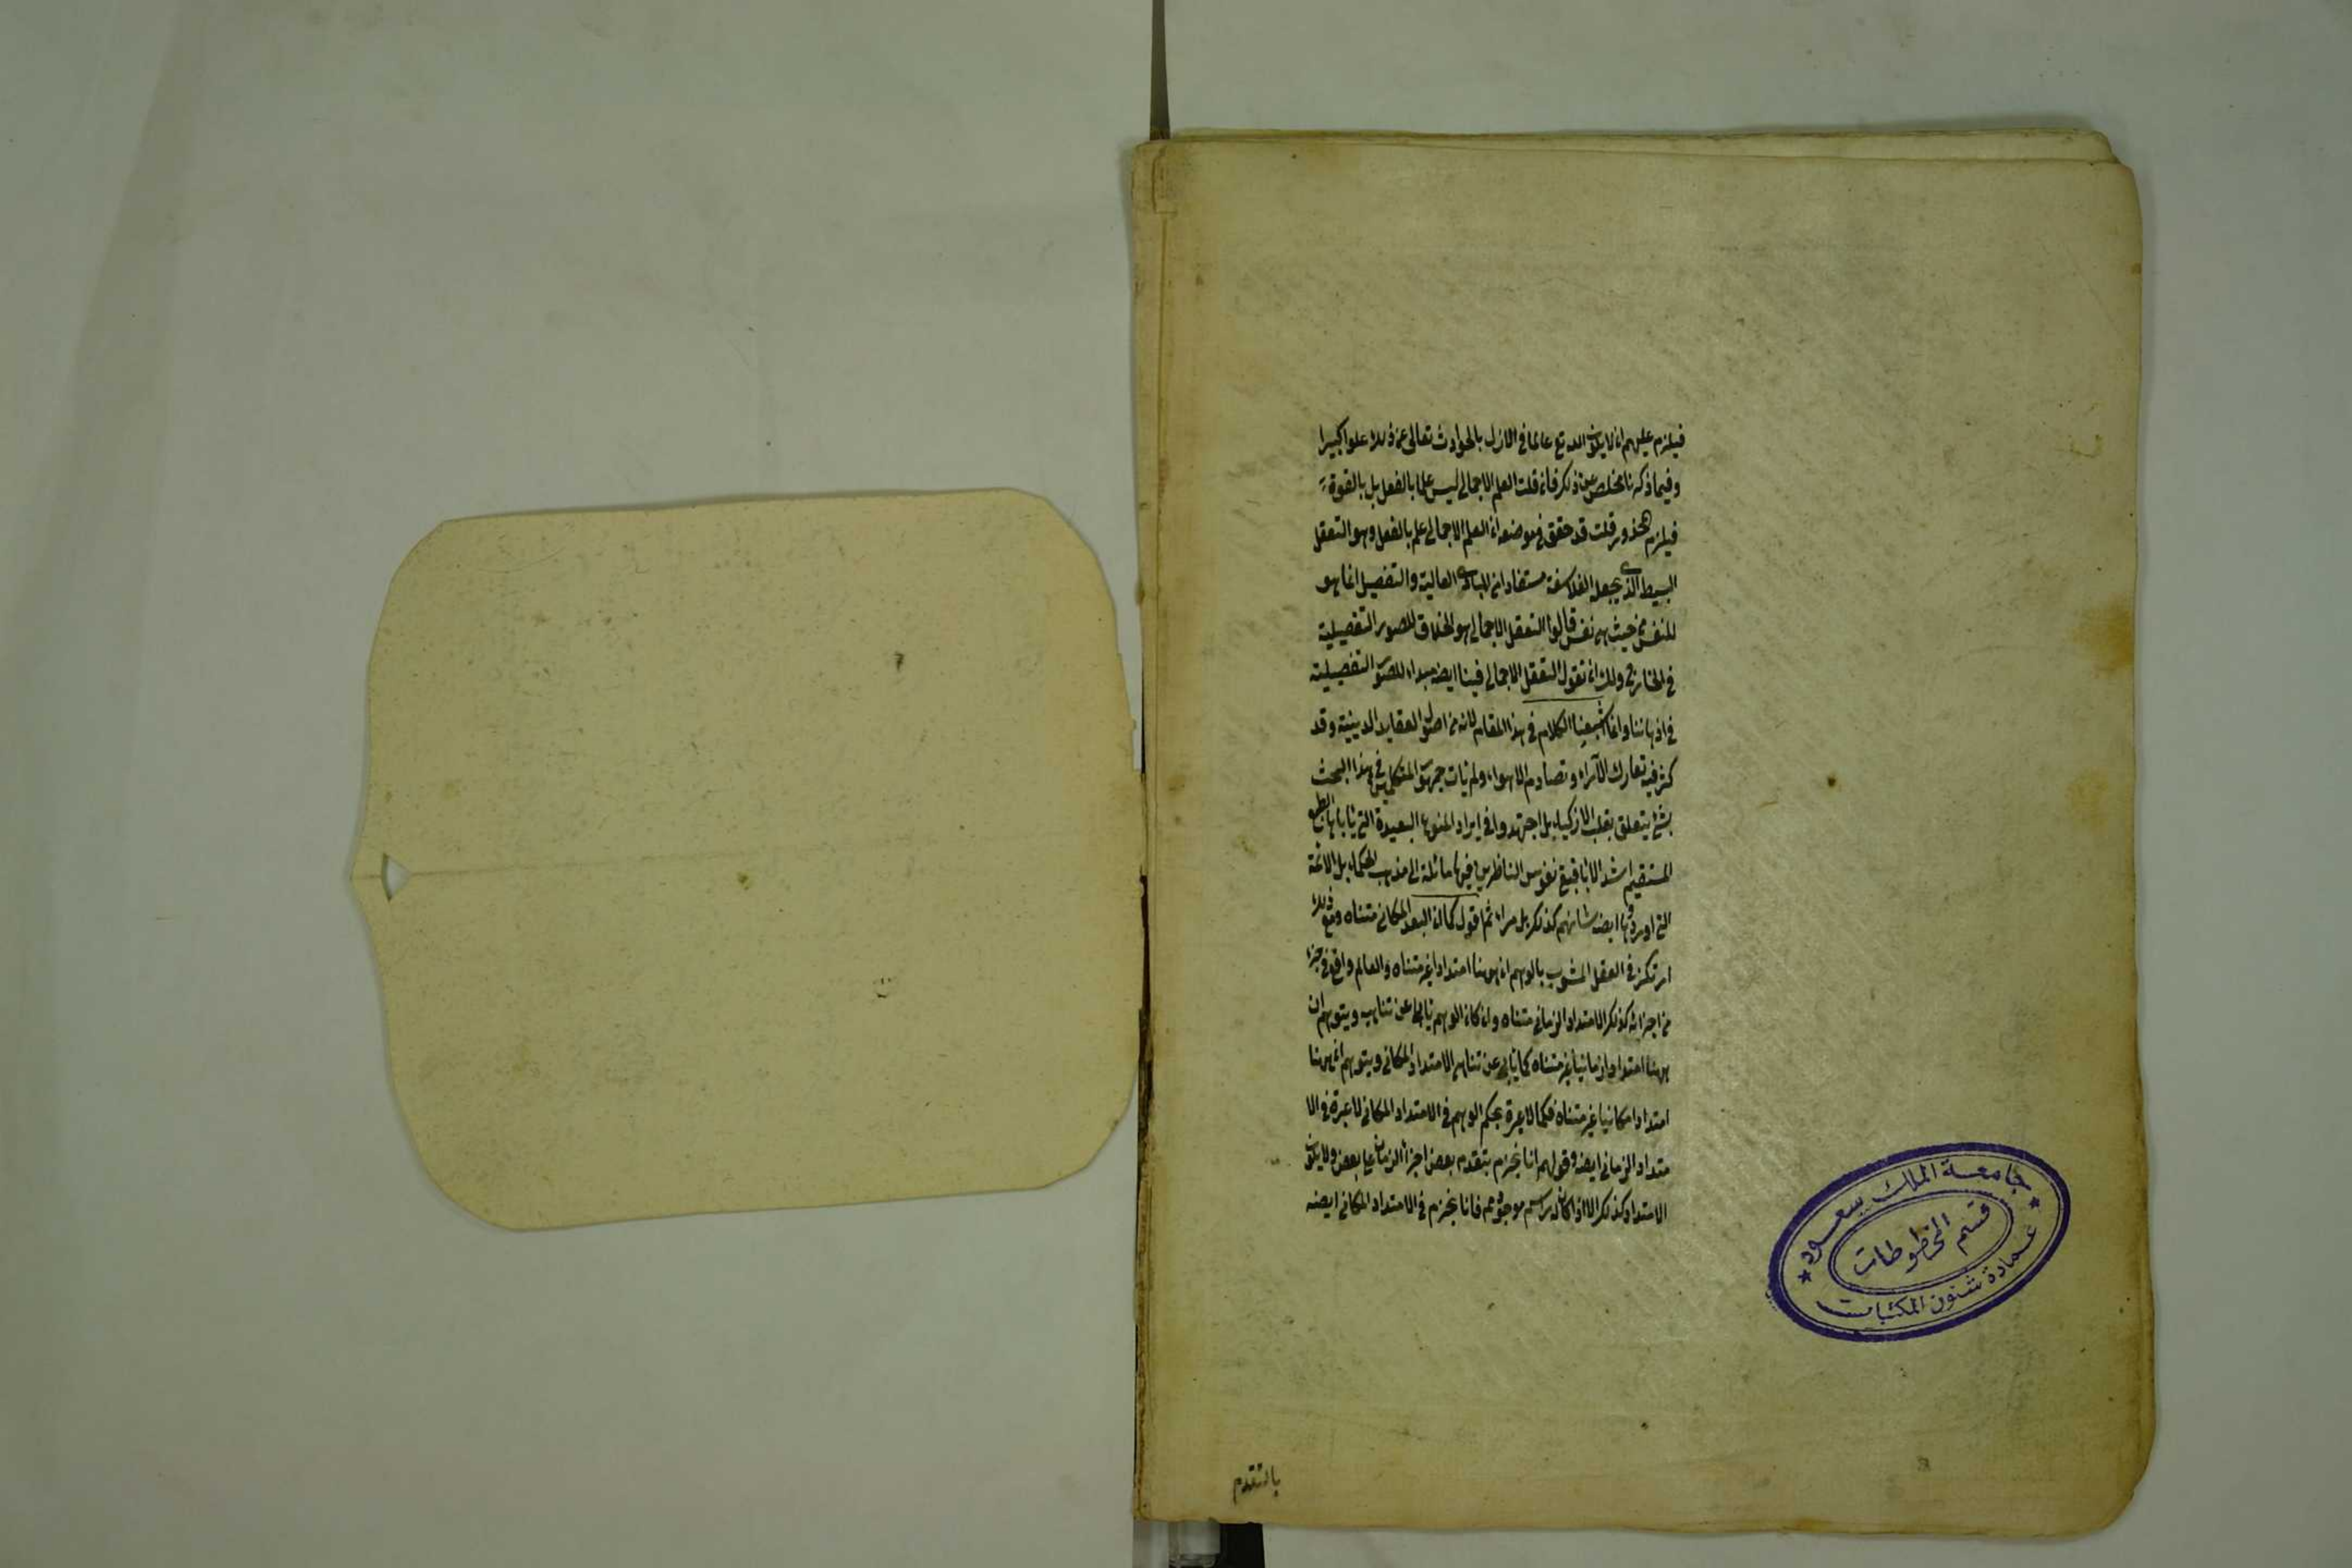 فيلزم عليهم ان لا يكون الله تع عالما في الازل بالحوادث تعالى عن ذلك علوا كبيرا
وفيما ذكرنا مخلص عن ذلك فان قلت العلم الاجمالي ليس علما بالفعل بل بالقوة
فيلزم المحذور قلت قد حقق في موضعه ان العلم الاجمالي علم بالفعل وهو التعقل
البسيط الذي يجعله الفلاسفة مستفادا من المبادي العالية والتفصيل انما هو
للنفس من حيث هي نفس قالوا التعقل الاجمالي هو الخلاق للصور التفصيلية
في الخارج ولك ان تقول التعقل الاجمالي فينا ايضا مبداء للصور التفصيلية
في اذهاننا وانما اشبعنا الكلام في هذا المقام لانه من اصول العقايد الدينية وقد
كثر فيه تعارك الآراء وتصادم الاهواء ولم يات جمهور المتكلمين في هذا البحث
بشئ يتعلق بقلب الازكياء بل اجتهدوا في ايراد المنوع البعيدة التي ياباها الطبع
المستقيم اشد الابا فبقي نفوس الناظرين فيها مائلة الى مذهب الحكماء بل الائمة
التي اوردوها ايضا شانهم كذلك بل مراء ثم اقول كما ان البعد المكاني متناه ومع ذلك
ارتكز في العقل المشوب بالوهم ان ههنا امتدادا غير متناه والعالم واقع في جزء
من اجزائه كذلك الامتداد الزماني متناه وان كان الوهم يابى عن تناهيه ويتوهم ان
ههنا امتدادا زمانيا غير متناه كما يابى عن تناهي الامتداد المكاني ويتوهم ان ههنا
امتدادا مكانيا غير متناه فكما لا عبرة بحكم الوهم في الامتداد المكاني لا عبرة في الا
متداد الزماني ايضا وقولهم انا نجزم بتقدم بعض اجزاء الزمان على بعض ولا يكون
الامتداد كذلك الا اذا كان راسمه موجودا ثم فانا نجزم في الامتداد المكاني ايضا
بالتقدم
جامعة الملك سعود
قسم المخطوطات
عمادة شئون المكتبات